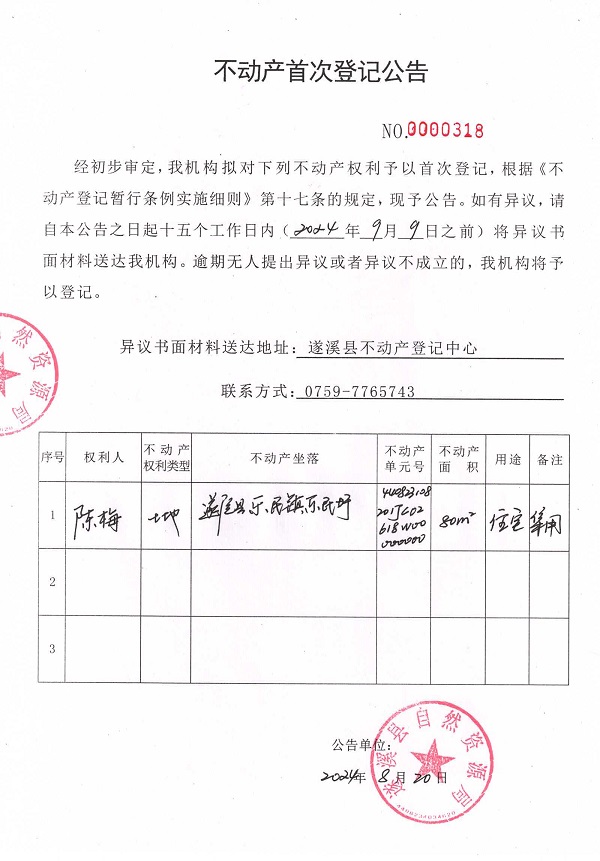 不动产首次登记公告
NO.0000318
经初步审定，我机构拟对下列不动产权利予以首次登记，根据《不
动产登记暂行条例实施细则》第十七条的规定，现予公告。如有异议，请
自本公告之日起十五个工作日内（2024年9月9日之前）将异议书
面材料送达我机构。逾期无人提出异议或者异议不成立的，我机构将予
以登记。
然资源局
异议书面材料送达地址：遂溪县不动产登记中心
联系方式：0759-7765743
序号 权利人 不动产权利类型 不动产坐落 不动产单元号 不动产面积 用途 备注
1 陈梅 土地 遂溪县乐民镇乐民圩 440823108 80m² 住宅
2
3
公告单位：
2024年8月20日
遂溪县自然资源局